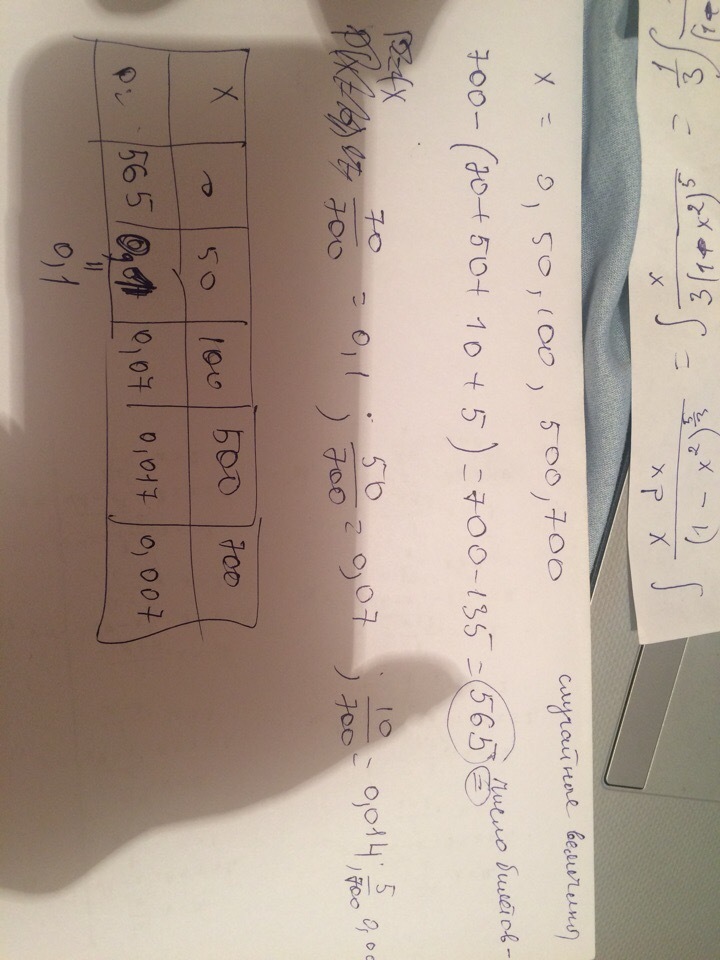 ∫ x dx / (1 - x²)^(5/2) = ∫ x / 3(1 - x²)⁵ = 1/3 ∫
x = 0, 50, 100, 500, 700 случайные величины
700 - (70 + 50 + 10 + 5) = 700 - 135 = 565 = число билетов-
70/700 = 0,1 ; 50/700 = 0,07 ; 10/700 = 0,014 ; 5/700
x 0 50 100 500 700
pi 565 0,07 0,017 0,007
0,1